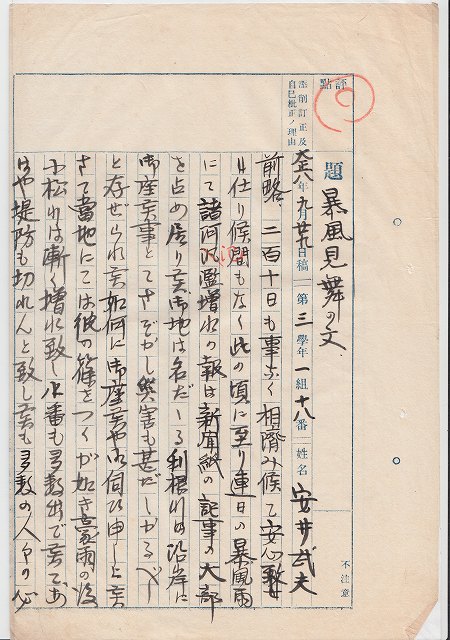 評點
添削訂正及
自己批正ノ理由
題 暴風見舞の文
大六年九月廿九日稿 第三學年一組十八番 姓名 安井武夫
不注意
前略、二百十日も事なく相濟み候て安心致
し仕り候間もなく此の頃に至り連日の暴風雨
にて諸河川濫増水の報は新聞紙の記事の大部
を占め居り候御地は名だゝる利根川の沿岸に
御座候事とてさぞかし災害も甚だしかるべし
と存ぜられ候如何に御座候や御伺ひ申し上候
さて當地にては彼の篠をつくが如き豪雨の後
小松川は漸く増水致し水番も多數出で候てあ
はや堤防も切れんと致し候も多數の人々の必